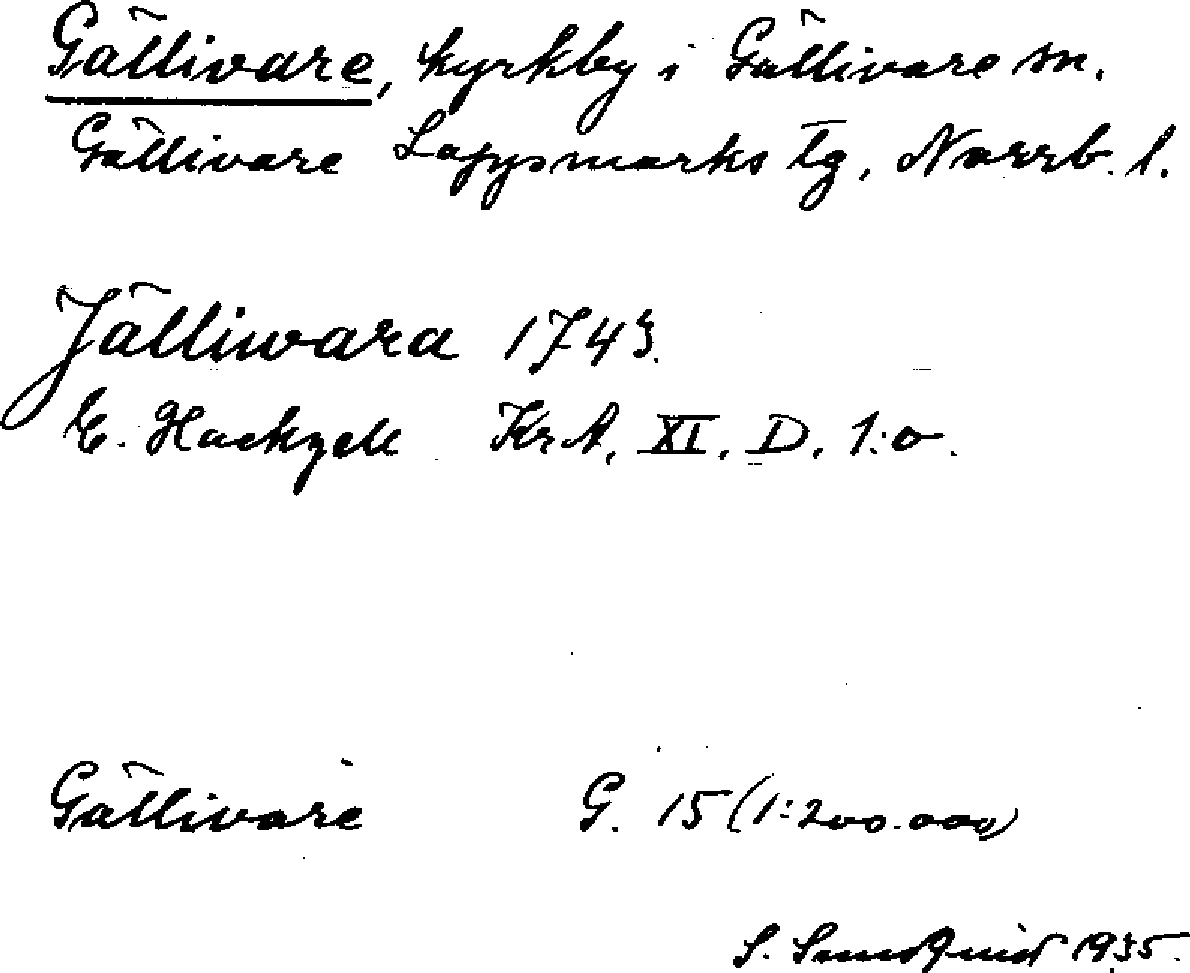 Gällivare, kyrkby i Gällivare sn.
Gällivare Lappmarks tg, Norrb. l.
Jälliwara 1743.
E. Hackzell KrA. XI. D. 1:o.
Gällivare G. 15 (1:200.000)
S. Sundquist 1935.